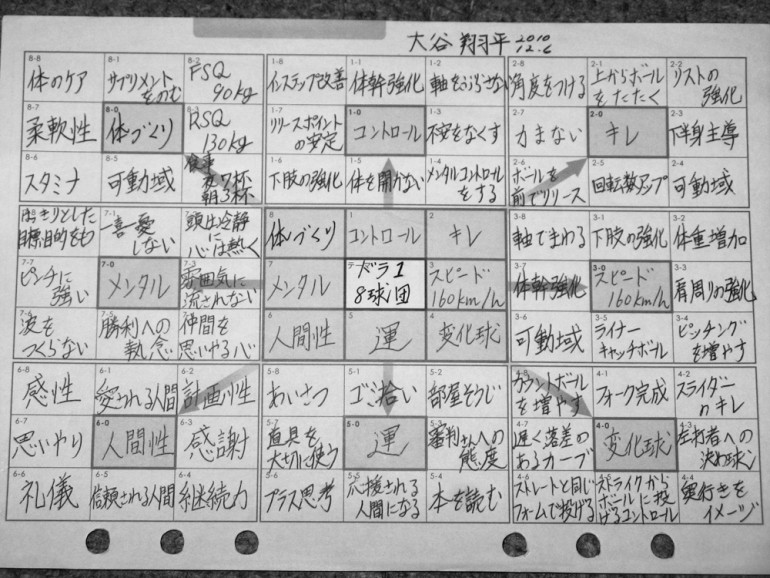 大谷 翔平 2010 12.6
8-8 体のケア
8-1 サプリメントをのむ
8-2 FSQ 90kg
1-8 インステップ改善
1-1 体幹強化
1-2 軸をぶらさない
2-8 角度をつける
2-1 上からボールをたたく
2-2 リストの強化
8-7 柔軟性
8-0 体づくり
8-3 RSQ 130kg
1-7 リリースポイントの安定
1-0 コントロール
1-3 不安をなくす
2-7 力まない
2-0 キレ
2-3 下半身主導
8-6 スタミナ
8-5 可動域
食事 夜7杯 朝3杯
1-6 下肢の強化
1-5 体を開かない
1-4 メンタルコントロールをする
2-6 ボールを前でリリース
2-5 回転数アップ
2-4 可動域
はっきりとした目標、目的をもつ
7-1 一喜一憂しない
頭は冷静に心は熱く
8 体づくり
1 コントロール
2 キレ
3-8 軸でまわる
3-1 下肢の強化
3-2 体重増加
7-7 ピンチに強い
7-0 メンタル
7-3 雰囲気に流されない
7 メンタル
ドラ1 8球団
3 スピード 160km/h
3-7 体幹強化
3-0 スピード 160km/h
3-3 肩周りの強化
7-6 波をつくらない
7-5 勝利への執念
7-4 仲間を思いやる心
6 人間性
5 運
4 変化球
3-6 可動域
3-5 ライナーキャッチボール
3-4 ピッチングを増やす
6-8 感性
6-1 愛される人間
6-2 計画性
5-8 あいさつ
5-1 ゴミ拾い
5-2 部屋そうじ
4-8 カウントボールを増やす
4-1 フォーク完成
4-2 スライダーのキレ
6-7 思いやり
6-0 人間性
6-3 感謝
5-7 道具を大切に使う
5-0 運
5-3 審判さんへの態度
4-7 遅く落差のあるカーブ
4-0 変化球
4-3 左打者への決め球
6-6 礼儀
6-5 信頼される人間
6-4 継続力
5-6 プラス思考
5-5 応援される人間になる
5-4 本を読む
4-6 ストレートと同じフォームで投げる
ストライクからボールに投げるコントロール
4-4 奥行きをイメージ